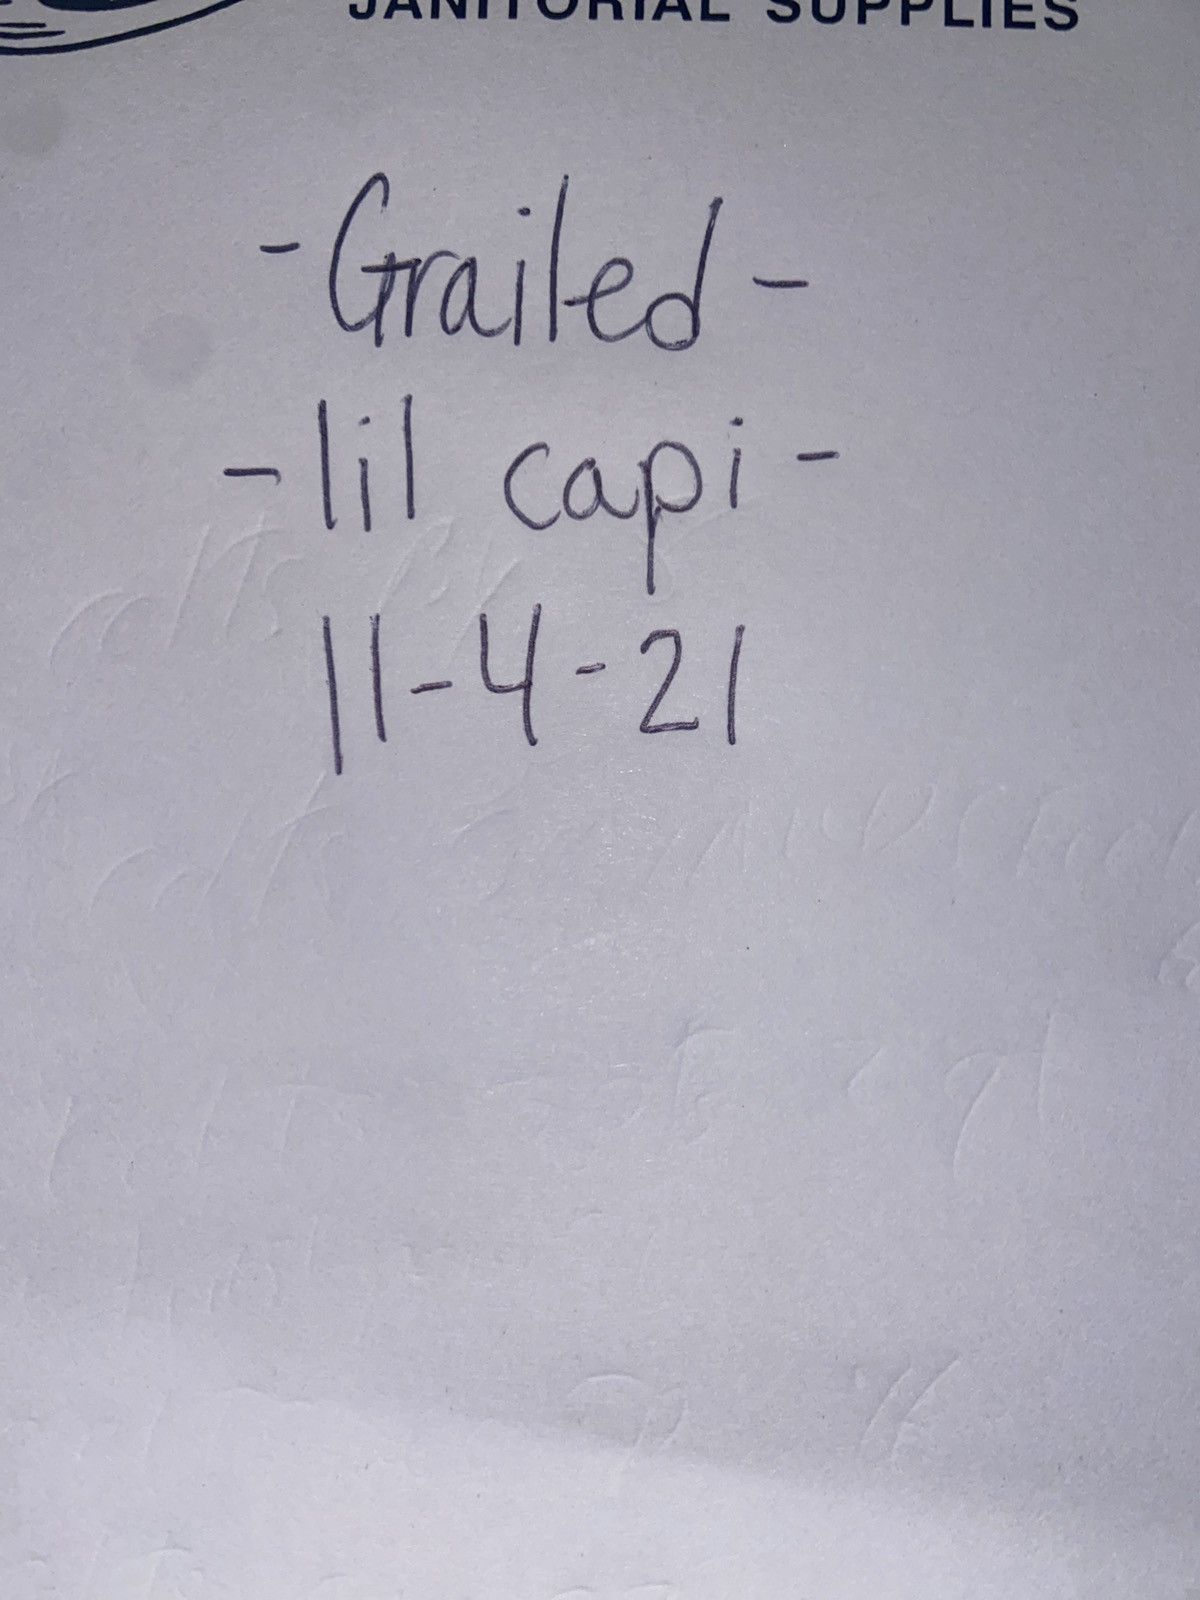 JANITORIAL SUPPLIES
-Grailed-
-lil capi-
11-4-21